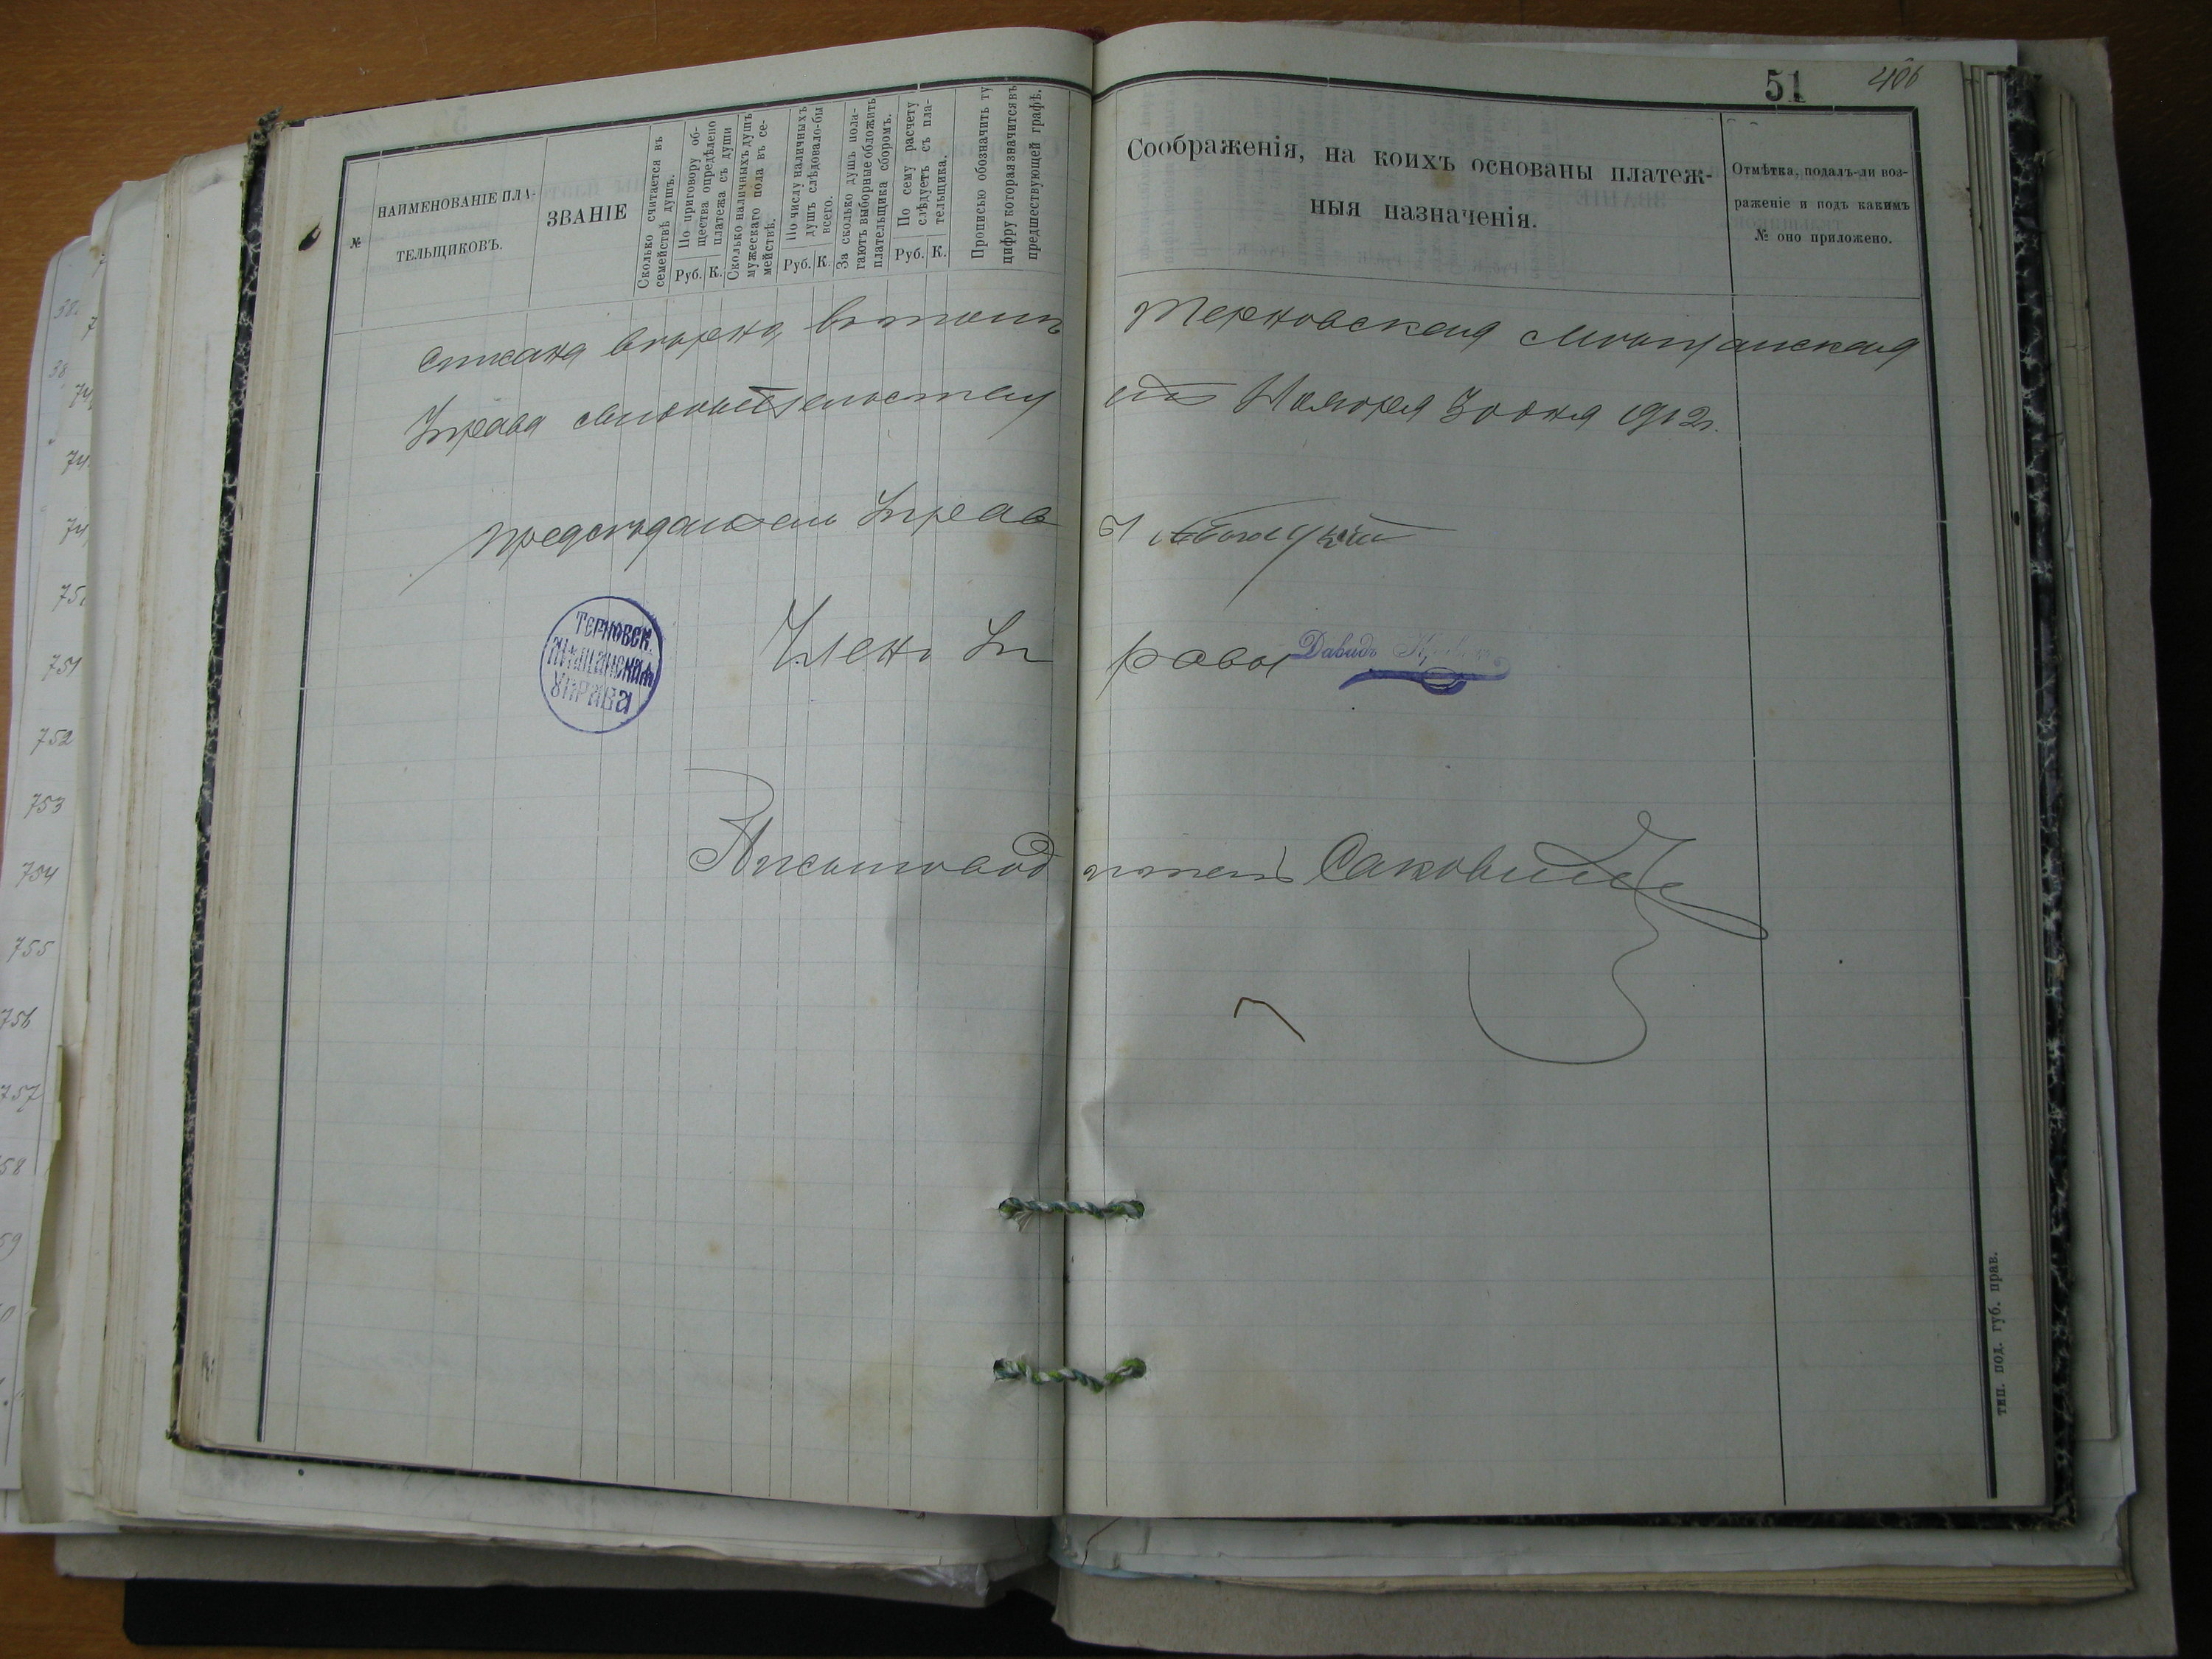 51
406
№
НАИМЕНОВАНІЕ ПЛА-
ТЕЛЬЩИКОВЪ.
ЗВАНІЕ
Сколько считается въ
семействѣ душъ.
По приговору об-
щества опредѣлено
платежа съ души
Руб. К.
Сколько наличныхъ душъ
мужескаго пола въ се-
мействѣ.
По числу наличныхъ
душъ слѣдовало-бы
всего.
Руб. К.
За сколько душъ пола-
гаютъ выборные обложить
плательщика сборомъ.
По сему расчету
слѣдуетъ съ пла-
тельщика.
Руб. К.
Прописью обозначить ту
цифру которая значится въ
предшествующей графѣ.
Соображенія, на коихъ основаны платеж-
ныя назначенія.
Отмѣтка, подалъ-ли воз-
раженіе и подъ какимъ
№ оно приложено.
списана вѣрно, въ томъ Терновская Мѣщанская
Управа Ноября 30 дня 1912 г.
Предсѣдатель Управы
Терновск.
Мѣщанская
Управа
Членъ Управы Давидъ
Письмоводитель Сакович
753
754
755
756
757
752
751
тип. под. губ. прав.